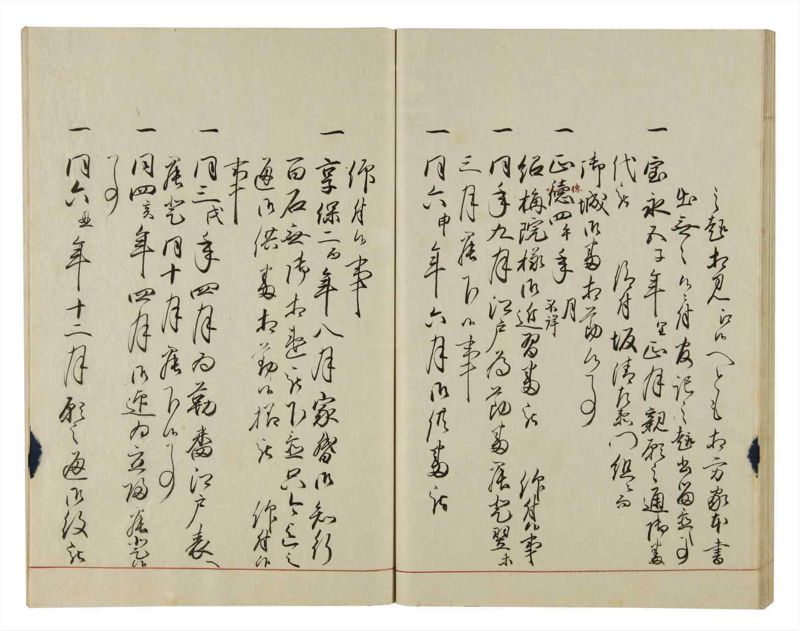 之趣相見え候へとも相方家本書
出無之候ニ付友記之趣書留置事
一宝永五子年正月親願之通御番
代被　仰付坂清左衛門組ニ而
御城御番相勤候事
一正徳四午年　月不詳
絽梅院様御近習番被　仰付候事
一同年九月江戸為勤番罷登翌未
三月罷下候事
一同六申年六月御供番被
仰付候事
一享保二酉年八月家督御知行
百石無御相違被下置只今迄之
通御供番相勤候様被　仰付候
事
一同三戌年四月為勤番江戸表へ
罷登同十月罷下候事
一同四亥年四月御迎為立帰罷登候
事
一同六丑年十二月願之通御役被